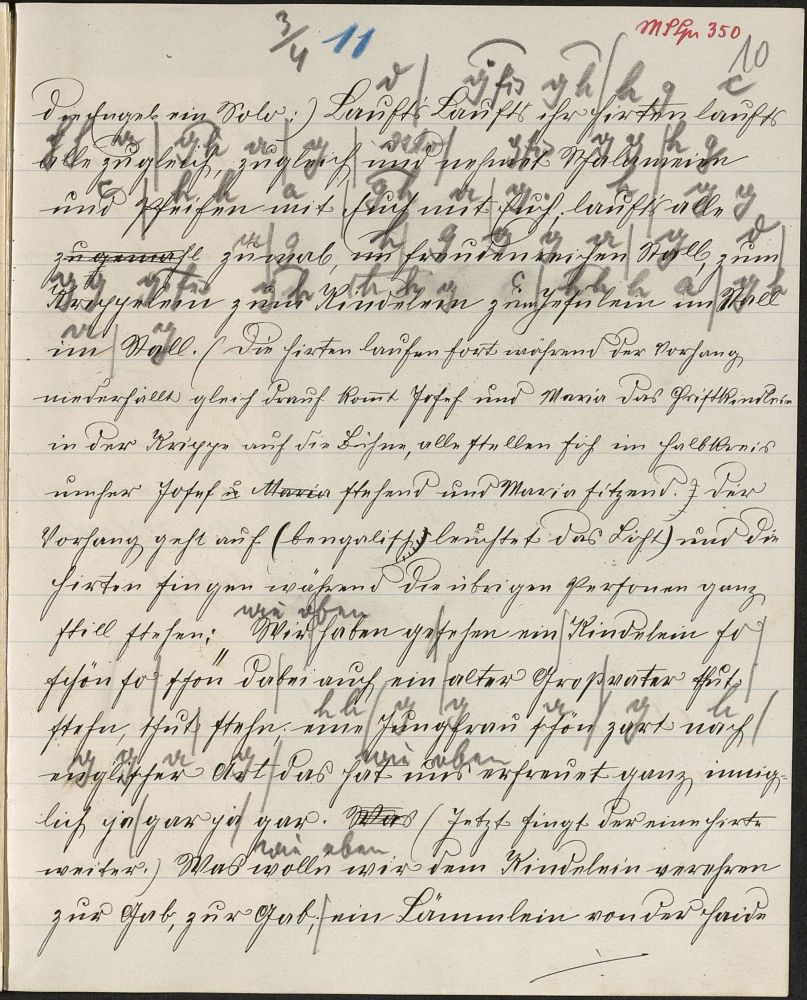 3/4 11 MS Gr 350
10
d g fis g h h g c
die Engel ein Solo:) Laufts Laufts ihr Hirten laufts
alle zugleich, zugleich und nehmet Schalmeien
und Pfeifen mit Euch mit Euch, laufts alle
zu gemahl zumal, im freudenreichen Stall, zum
Krippelein zum Kindelein zum Jesulein im Stall
im Stall. (Die Hirten laufen fort während der Vorhang
niederfällt gleich drauf komt Josef und Maria das Christkindlein
in der Krippe auf die Bühne, alle stellen sich im Halbkreis
umher Josef u Maria stehend und Maria sitzend.) Der
Vorhang geht auf (bengalisch leuchtet das Licht) und die
Hirten singen während die übrigen Personen ganz
wie oben
still stehen: Wir haben gesehen ein Kindelein so
schön so schön dabei auch ein alter Großvater thut
h h g g a g h
stehn, thut stehn, eine Jungfrau schön zart nach
g g a g wie oben
englischer Art das hat uns erfreuet ganz innig-
lich ja gar ja gar. Was (Jetzt singt der eine Hirte
wie oben
weiter.) Was wolln wir dem Kindelein verehren
zur Gab, zur Gab, ein Lämmlein von der Haide